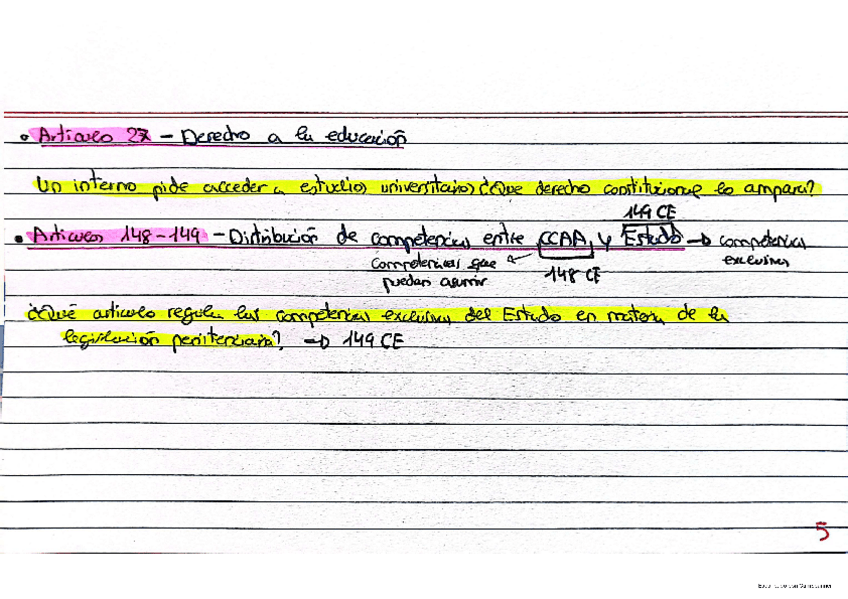 • Artículo 27 - Derecho a la educación
Un interno pide acceder a estudios universitarios ¿Qué derecho constitucional lo ampara?
149 CE
• Artículos 148-149 - Distribución de competencias entre CCAA y Estado → competencias
exclusivas
Competencias que
puedan asumir
148 CE
¿Qué artículo regula las competencias exclusivas del Estado en materia de la
legislación penitenciaria? → 149 CE
5